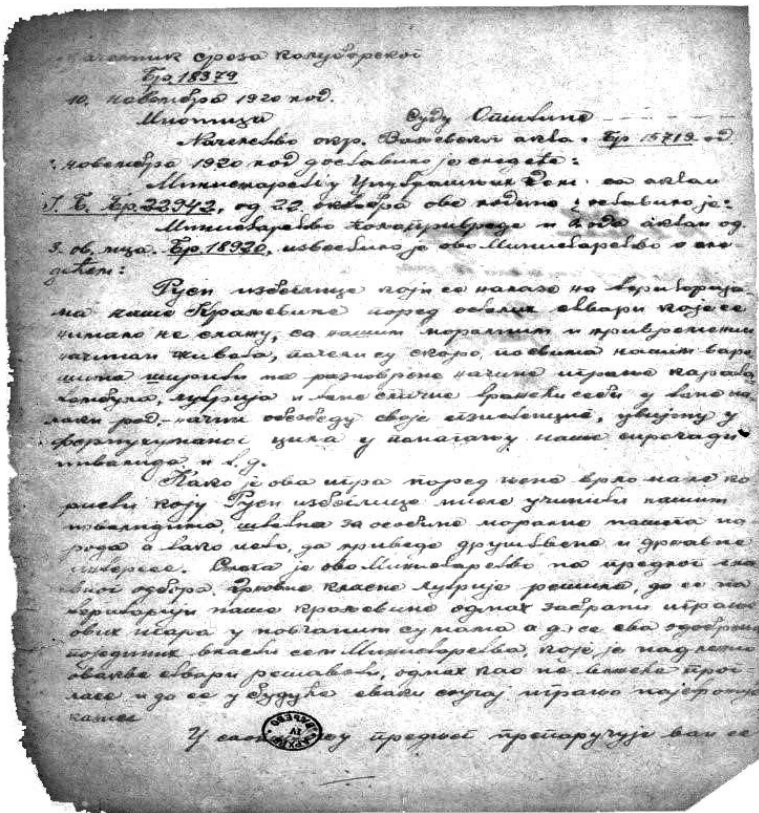 Начелник среза колубарског
Бр. 18379
10. новембра 1920 год.
Мионица Суду Општине
Начелство окр. Ваљевског актом Бр 15719 од
новембра 1920 год доставило је следеће:
Министарство Унутрашњих Дела са актом
Ј. Б. Бр. 22942, од 22 октобра ове године доставило је:
Министарство Пољопривреде и Вода актом од
3. ов. м-ца. Бр. 18920, известило је ово Министарство о сле
дећем:
Руси избеглице који се налазе на територија
ма наше Краљевине поред осталих ствари које се
нимало не слажу, са нашим моралним и привредним
начином живота, почели су скоро по свима нашим варо
шима ширити на разноврсне начине играње карата
томбола, лутрија и тиме стичне
лаки под начин обезбеду своје егзистенције, у
цила у помагању наше сирочади
инвалида и т. д.
Како је ова игра поред неке врло мале ко
ристи коју Руси избеглице мисле учинити нашим
инвалидима, штетна за особине морално нашега на
рода а тако исто, да привреде друштвене и државне
интересе. Стога је ово Министарство на предлог гла
вног одбора Државне класне лутрије решило, да се на
територији наше краљевине одмах забрани играње
ових игара у новчаним сумама а да се сва одобрења
појединих власти сем Министарства, које је надлежно
овакве ствари решавати, одмах као не важеће прог
ласе и да се у будуће сваки случај играња најстрожије
казни
У предњег препоручује вам се